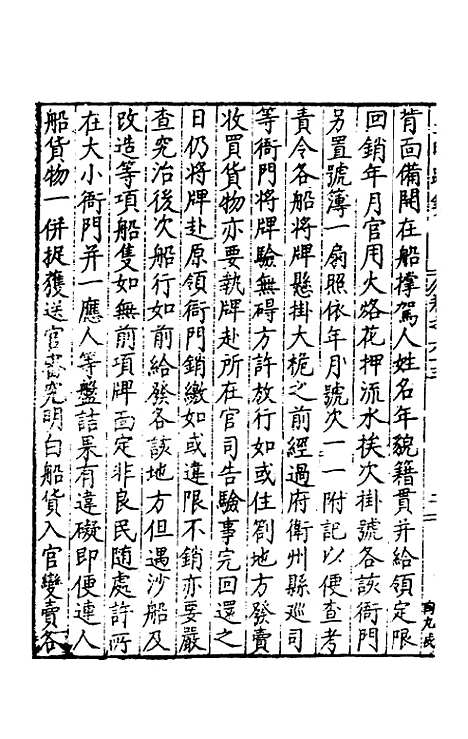 背面備開在船撑駕人姓名年貌籍貫并給領定限
回銷年月官用火烙花押流水挨次掛號各該衙門
另置號薄一扇照依年月號次一一附記以便查考
責令各船將牌懸掛大桅之前經過府衛州縣巡司
等衙門將牌驗無碍方許放行如或住劄地方發賣
收買貨物亦要執牌赴所在官司告驗事完回還之
日仍將牌赴原領衙門銷繳如或違限不銷亦要嚴
查究治後次船行如前給發各該地方但遇沙船及
改造等項船隻如無前項牌面定非良民隨處許所
在大小衙門并一應人等盤詰果有違礙即便連人
船貨物一併捉獲送官審究明白船貨入官變賣各